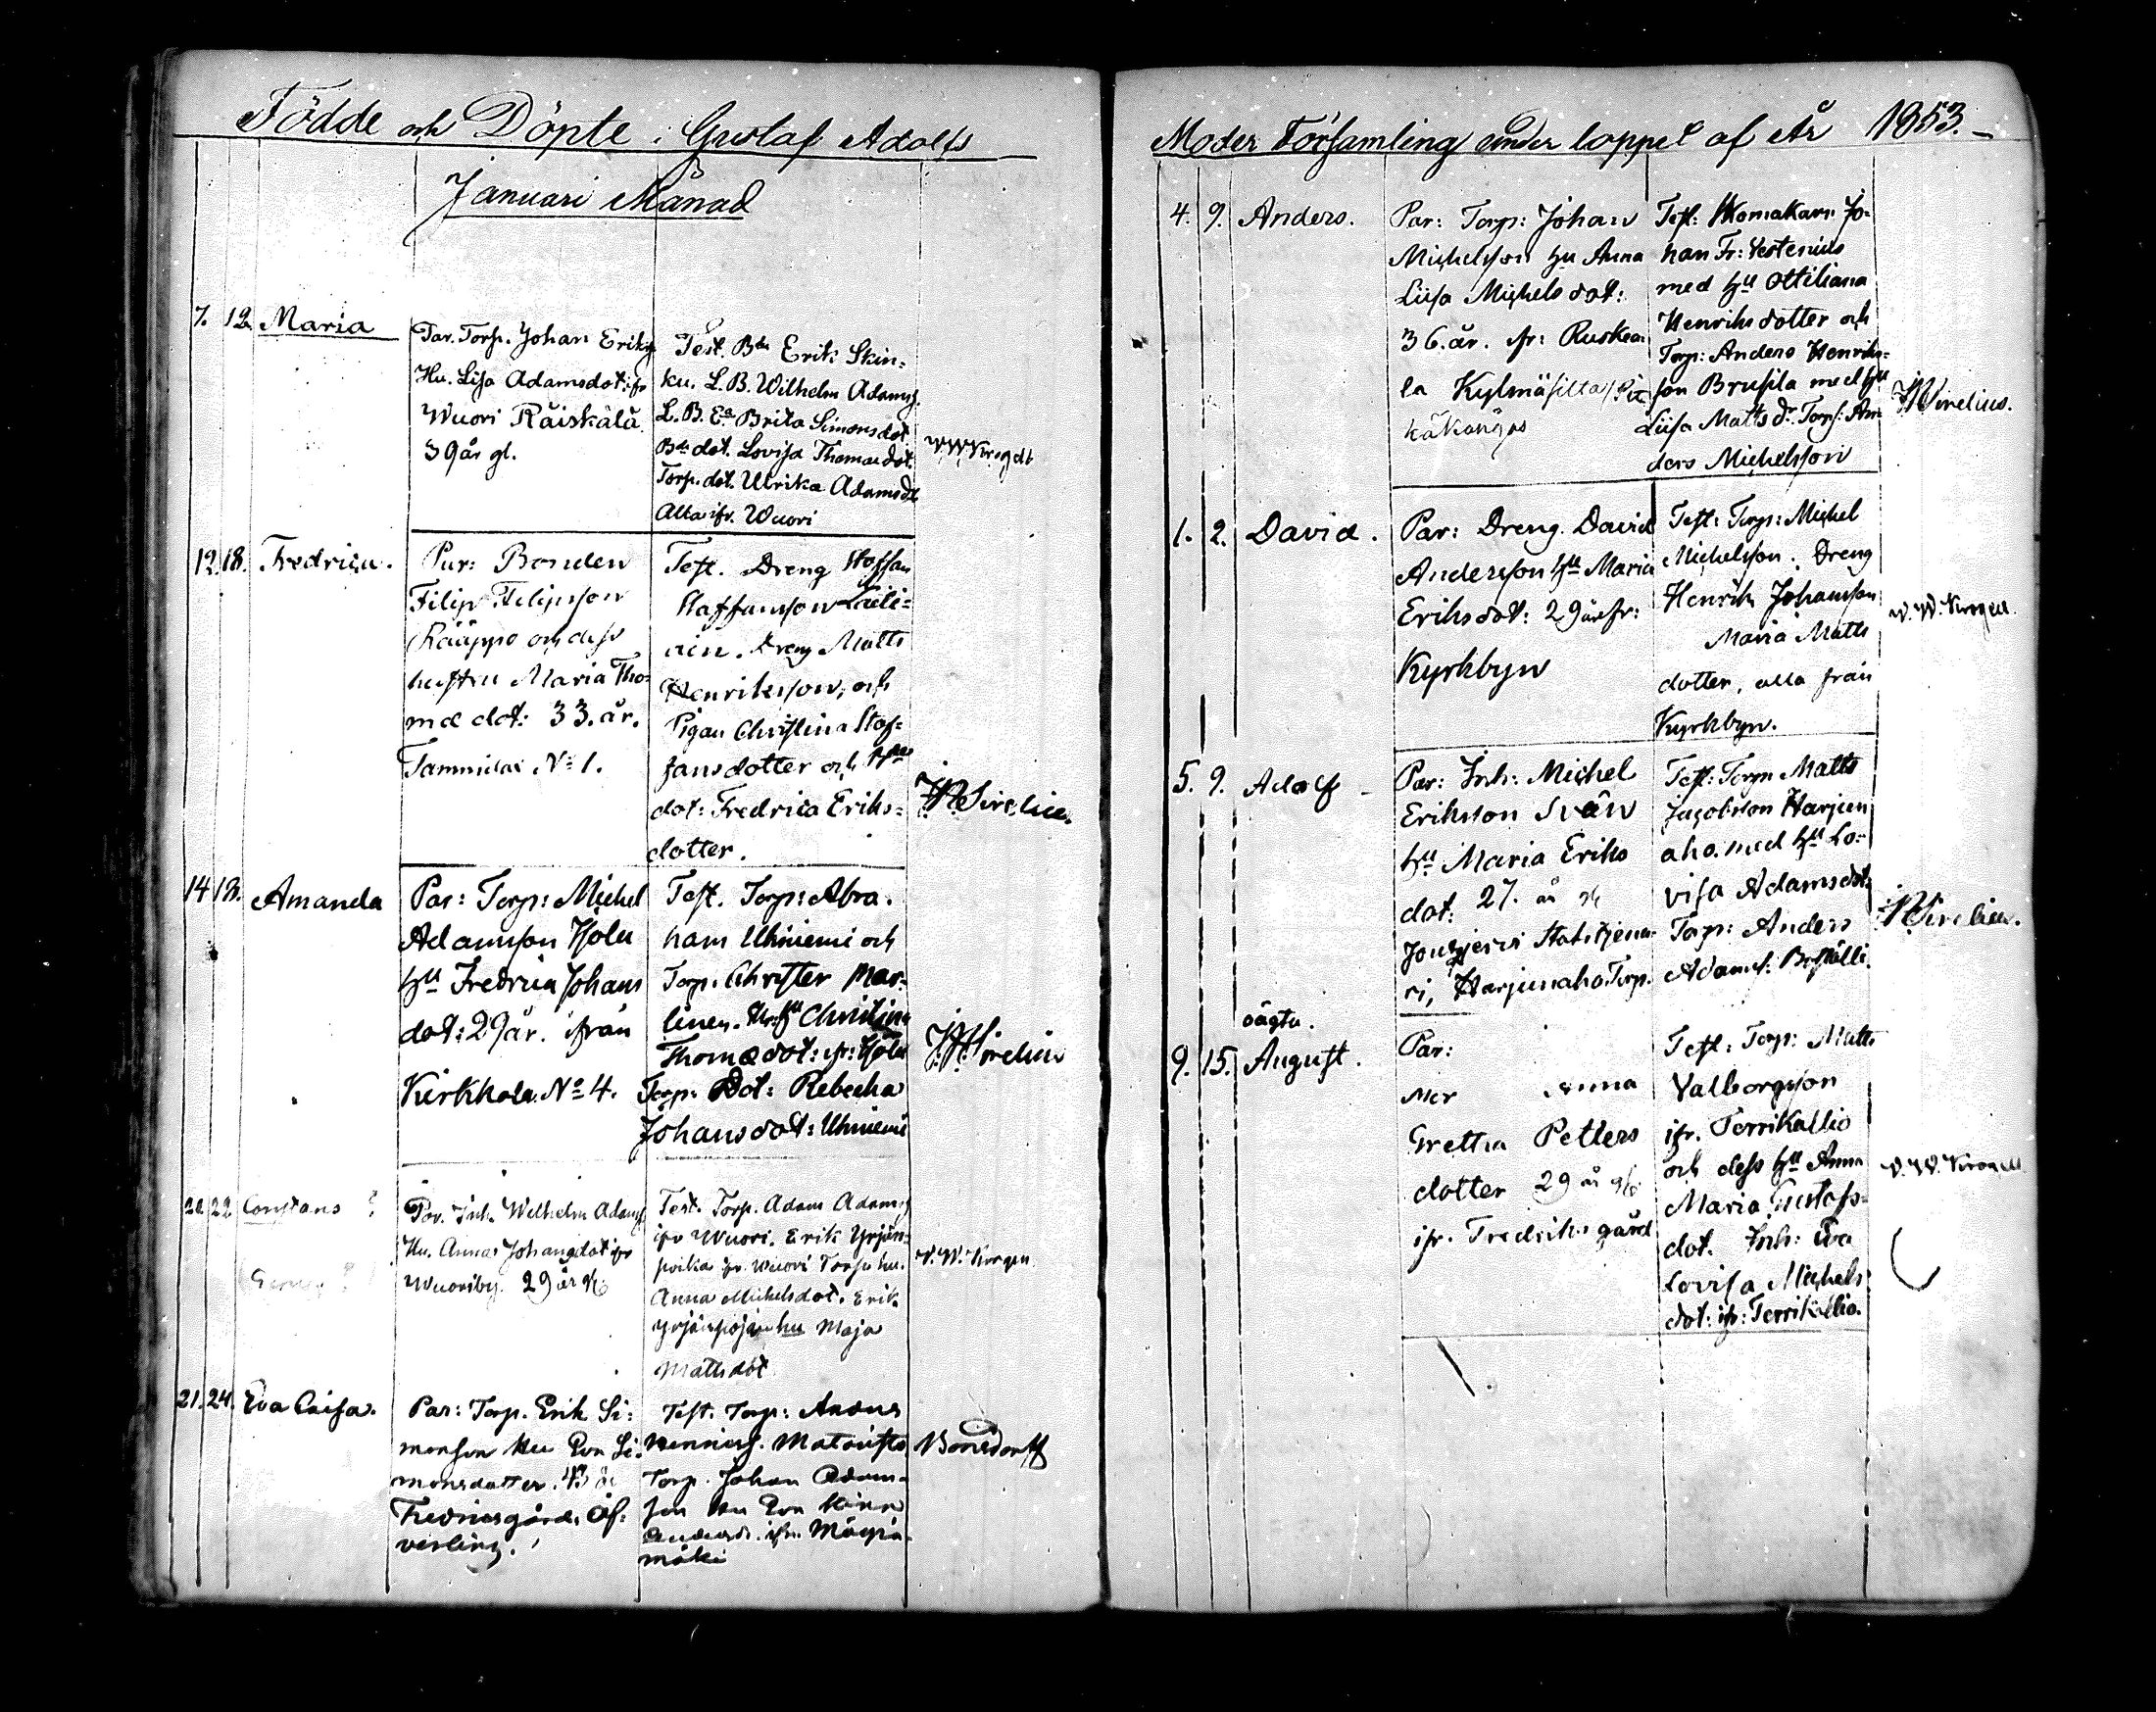 Födde och Döpte i Gustaf Adolfs
Januari Månad
7. 12. Maria
Par. Torp. Johan Eriks
Hu. Lisa Adamsdot: ifr
Wuori Räiskälä
39 år gl.
Test. Bdn Erik Skin-
ku. L. B. Wilhelm Adamss.
L. B. Ea Brita Simonsdot.
Bde dot. Lovisa Thomædot.
Torp. dot. Ulrika Adamsdt
Alla ifr. Wuori
12. 18. Fredrica.
Par: Bonden
Filip Filipsson
Rääppo och dess
hustru Maria Tho-
mæ dot: 33. år.
No 1.
Test. Dreng Staffan
Staffansson
Dreng Matts
Henriksson, och
Pigan Christina Staf-
fansdotter och
dot: Fredrica Eriks-
dotter.
14 18. Amanda
Par: Torp: Michel
Adamsson Hjolu
hu Fredrica Johans
dot: 29 år. ifrån
Kirkkola. No 4.
Test. Torp: Abra-
ham Uhiniemi och
Torp: Christer Mar-
Christina
Thomædot: ifr: Hjolu
Torp. Dot: Rebecka
Johansdot: Uhiniemi
22 Constans
Par. Inh. Wilhelm Adams
Hu. Anna Johansdot ifr
Wuoriby. 29 år gl.
Test. Torp. Adam Adamss
ifr Wuori. Erik Yrjän-
poika ifr. Wuori Torp. hu.
Anna Michelsdot. Erik
Yrjänpojan hu Maja
Mattsdot
21. 24. Eva Caisa.
Par: Torp. Erik Si-
monson hu Eva Si-
monsdotter. 43 år
Test: Torp: Anders
Torp. Johan Adam-
son hu Eva
mäki
Bonsdorff
Moder Församling under loppet af År 1853.
4. 9. Anders.
Par: Torp: Johan
Michelsson hu Anna
Liisa Michelsdot:
36. år. ifr: Ruskea
la Kylmäsilta
Test: Skomakarn Jo-
han Fr: Vestenius
med hu Ottiliana
Henriksdotter och
Torp: Anders Henriks-
son Brusila med hu
Liisa Matts dr. Torp: An-
ders Michelsson
Sirelius.
1. 2. David.
Par: Dreng. David
Andersson hu Maria
Eriksdot: 29 år fr:
Kyrkbyn
Test: Torp: Michel
Michelsson. Dreng
Henrik Johansson
Maria Matts
dotter, alla från
Kyrkbyn.
5. 9. Adolf
Par: Inh: Michel
Eriksson Svän
hu Maria Eriks
dot: 27. år gl
Joutsjervi
ri, Harjunaho Torp.
Test: Torp Matts
Jacobsson Harjun
aho. med hu Lo-
visa Adamsdot:
Torp: Anders
Adams:
oägta.
9. 15. August.
Par:
Mor Anna
Gretha Petters
dotter 29 år gl:
ifr. Fredriksgård
Test: Torp: Matts
Valborgsson
ifr. Terrikallio
och dess hu Anna
Maria Gustafs-
dot. Inh: Eva
Lovisa Michels
dot: ifr: Terrikallio.